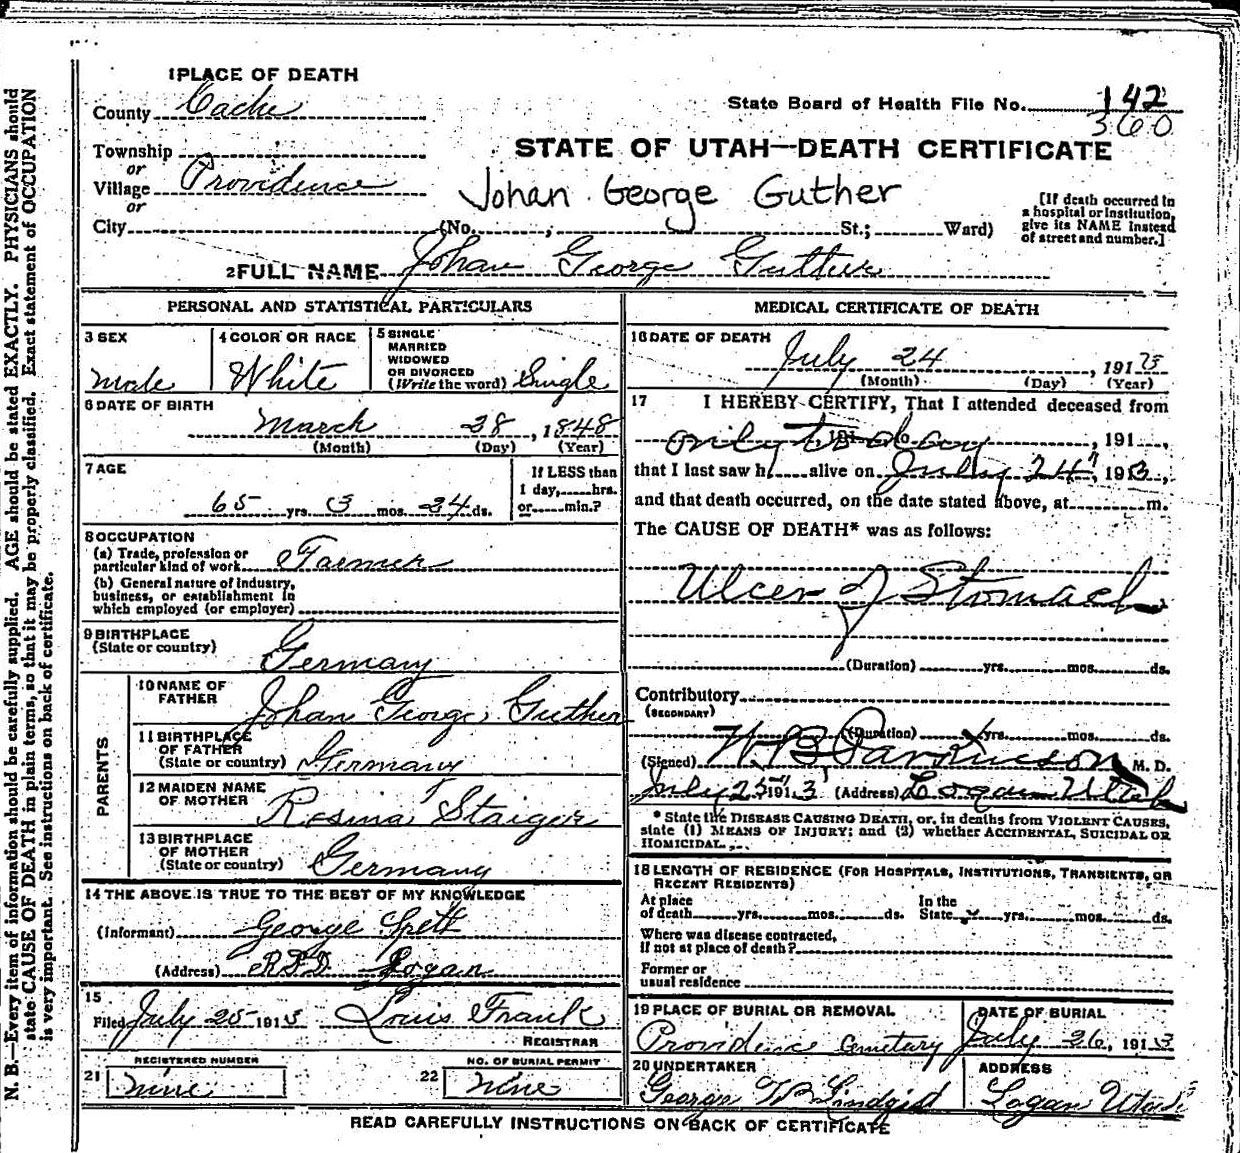 N. B.—Every item of information should be carefully supplied. AGE should be stated EXACTLY. PHYSICIANS should
state CAUSE OF DEATH in plain terms, so that it may be properly classified. Exact statement of OCCUPATION
is very important. See instructions on back of certificate.
1 PLACE OF DEATH
County Cache
State Board of Health File No. 142
360
Township
or
Village Providence
or
City
STATE OF UTAH—DEATH CERTIFICATE
Johan George Guther
(No. , St.; Ward)
[If death occurred in
a hospital or institution,
give its NAME instead
of street and number.]
2 FULL NAME Johan George Guther
PERSONAL AND STATISTICAL PARTICULARS
3 SEX
Male
4 COLOR OR RACE
White
5 SINGLE
MARRIED
WIDOWED
OR DIVORCED
(Write the word) Single
6 DATE OF BIRTH
March 28, 1848
(Month) (Day) (Year)
7 AGE
65 yrs. 3 mos. 24 ds.
If LESS than
1 day, hrs.
or min.?
8 OCCUPATION
(a) Trade, profession or
particular kind of work Farmer
(b) General nature of industry,
business, or establishment in
which employed (or employer)
9 BIRTHPLACE
(State or country)
Germany
PARENTS
10 NAME OF
FATHER
Johan George Guther
11 BIRTHPLACE
OF FATHER
(State or country) Germany
12 MAIDEN NAME
OF MOTHER
Rosina Staiger
13 BIRTHPLACE
OF MOTHER
(State or country) Germany
14 THE ABOVE IS TRUE TO THE BEST OF MY KNOWLEDGE
(Informant) George Spett
(Address) R.F.D. Logan
15
Filed July 25 1913 Louis Frank
REGISTRAR
REGISTERED NUMBER
21 nine
NO. OF BURIAL PERMIT
22 nine
MEDICAL CERTIFICATE OF DEATH
16 DATE OF DEATH
July 24, 1913
(Month) (Day) (Year)
17 I HEREBY CERTIFY, That I attended deceased from
only to-day, 191
that I last saw h alive on July 24", 1913,
and that death occurred, on the date stated above, at m.
The CAUSE OF DEATH* was as follows:
Ulcer of Stomach
(Duration) yrs. mos. ds.
Contributory
(SECONDARY)
(Duration) yrs. mos. ds.
(Signed) W B Parkinson M. D.
July 25" 1913 (Address) Logan Utah
* State the DISEASE CAUSING DEATH, or, in deaths from VIOLENT CAUSES,
state (1) MEANS OF INJURY; and (2) whether ACCIDENTAL, SUICIDAL OR
HOMICIDAL.
18 LENGTH OF RESIDENCE (FOR HOSPITALS, INSTITUTIONS, TRANSIENTS, OR
RECENT RESIDENTS)
At place
of death yrs. mos. ds.
In the
State yrs. mos. ds.
Where was disease contracted,
if not at place of death?
Former or
usual residence
19 PLACE OF BURIAL OR REMOVAL
Providence Cemetary
DATE OF BURIAL
July 26, 1913
20 UNDERTAKER
George W Lindquist
ADDRESS
Logan Utah
READ CAREFULLY INSTRUCTIONS ON BACK OF CERTIFICATE